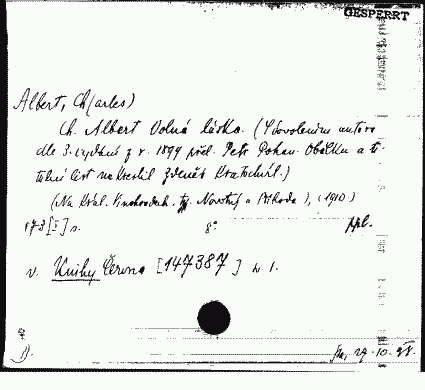 GESPERRT
Albert, Ch(arles)
Ch. Albert Volná láska. (S dovolením autora
dle 3. vydání z r. 1899 přel. Petr Pohan. Obálku a ti-
tulní list nakreslil Zdeněk Kratochvíl.)
(Na Král. Vinohradech, Novotný a ), (1910.)
173 [I] s. 8° ppl.
v. Knihy Června [147387] sv. 1.
27.10.